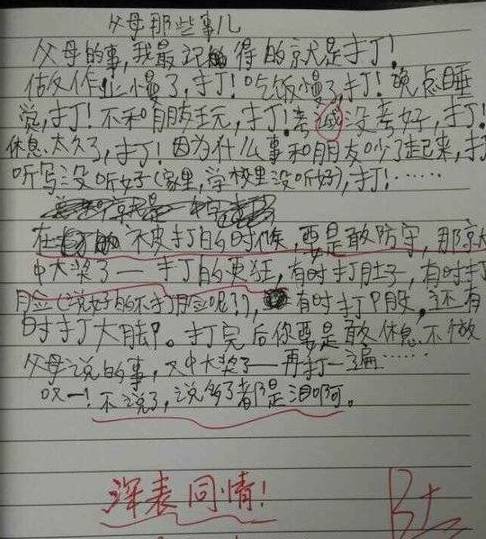 父母那些事儿
父母的事,我最记得的就是打!
做作业慢了,打!吃饭慢了,打!晚点睡
觉,打!不和朋友玩,打!考试没考好,打!
休息太久了,打!因为什么事和朋友吵了起来,打
听写没听好(家里,学校里没听好),打!……
在被打的时候,要是敢防守,那就
中大奖了——打的更狂,有时打肚子,有时打
脸(说好的不打脸呢?),有时打腿,还有
时打大腿。打完后你要是敢休息不做
父母说的事,又中大奖了——再打一遍……
哎!不说了,说多了都是泪啊。
深表同情!
B+